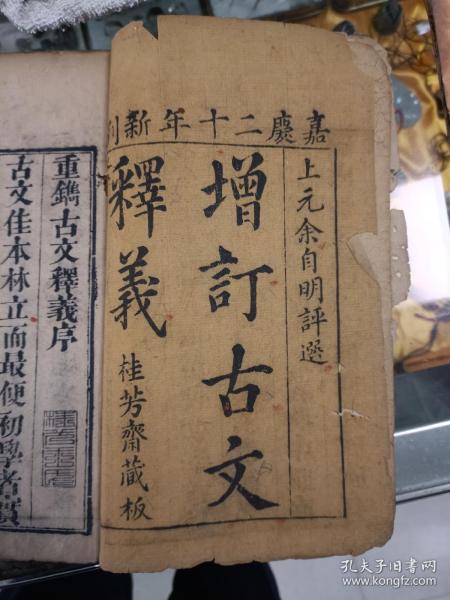 嘉慶二十年新刊
上元余自明評選
增訂古文
釋義
桂芳齋藏板
重鐫古文釋義序
古文佳本林立而最便初學者實
孔夫子旧书网
www.kongfz.com